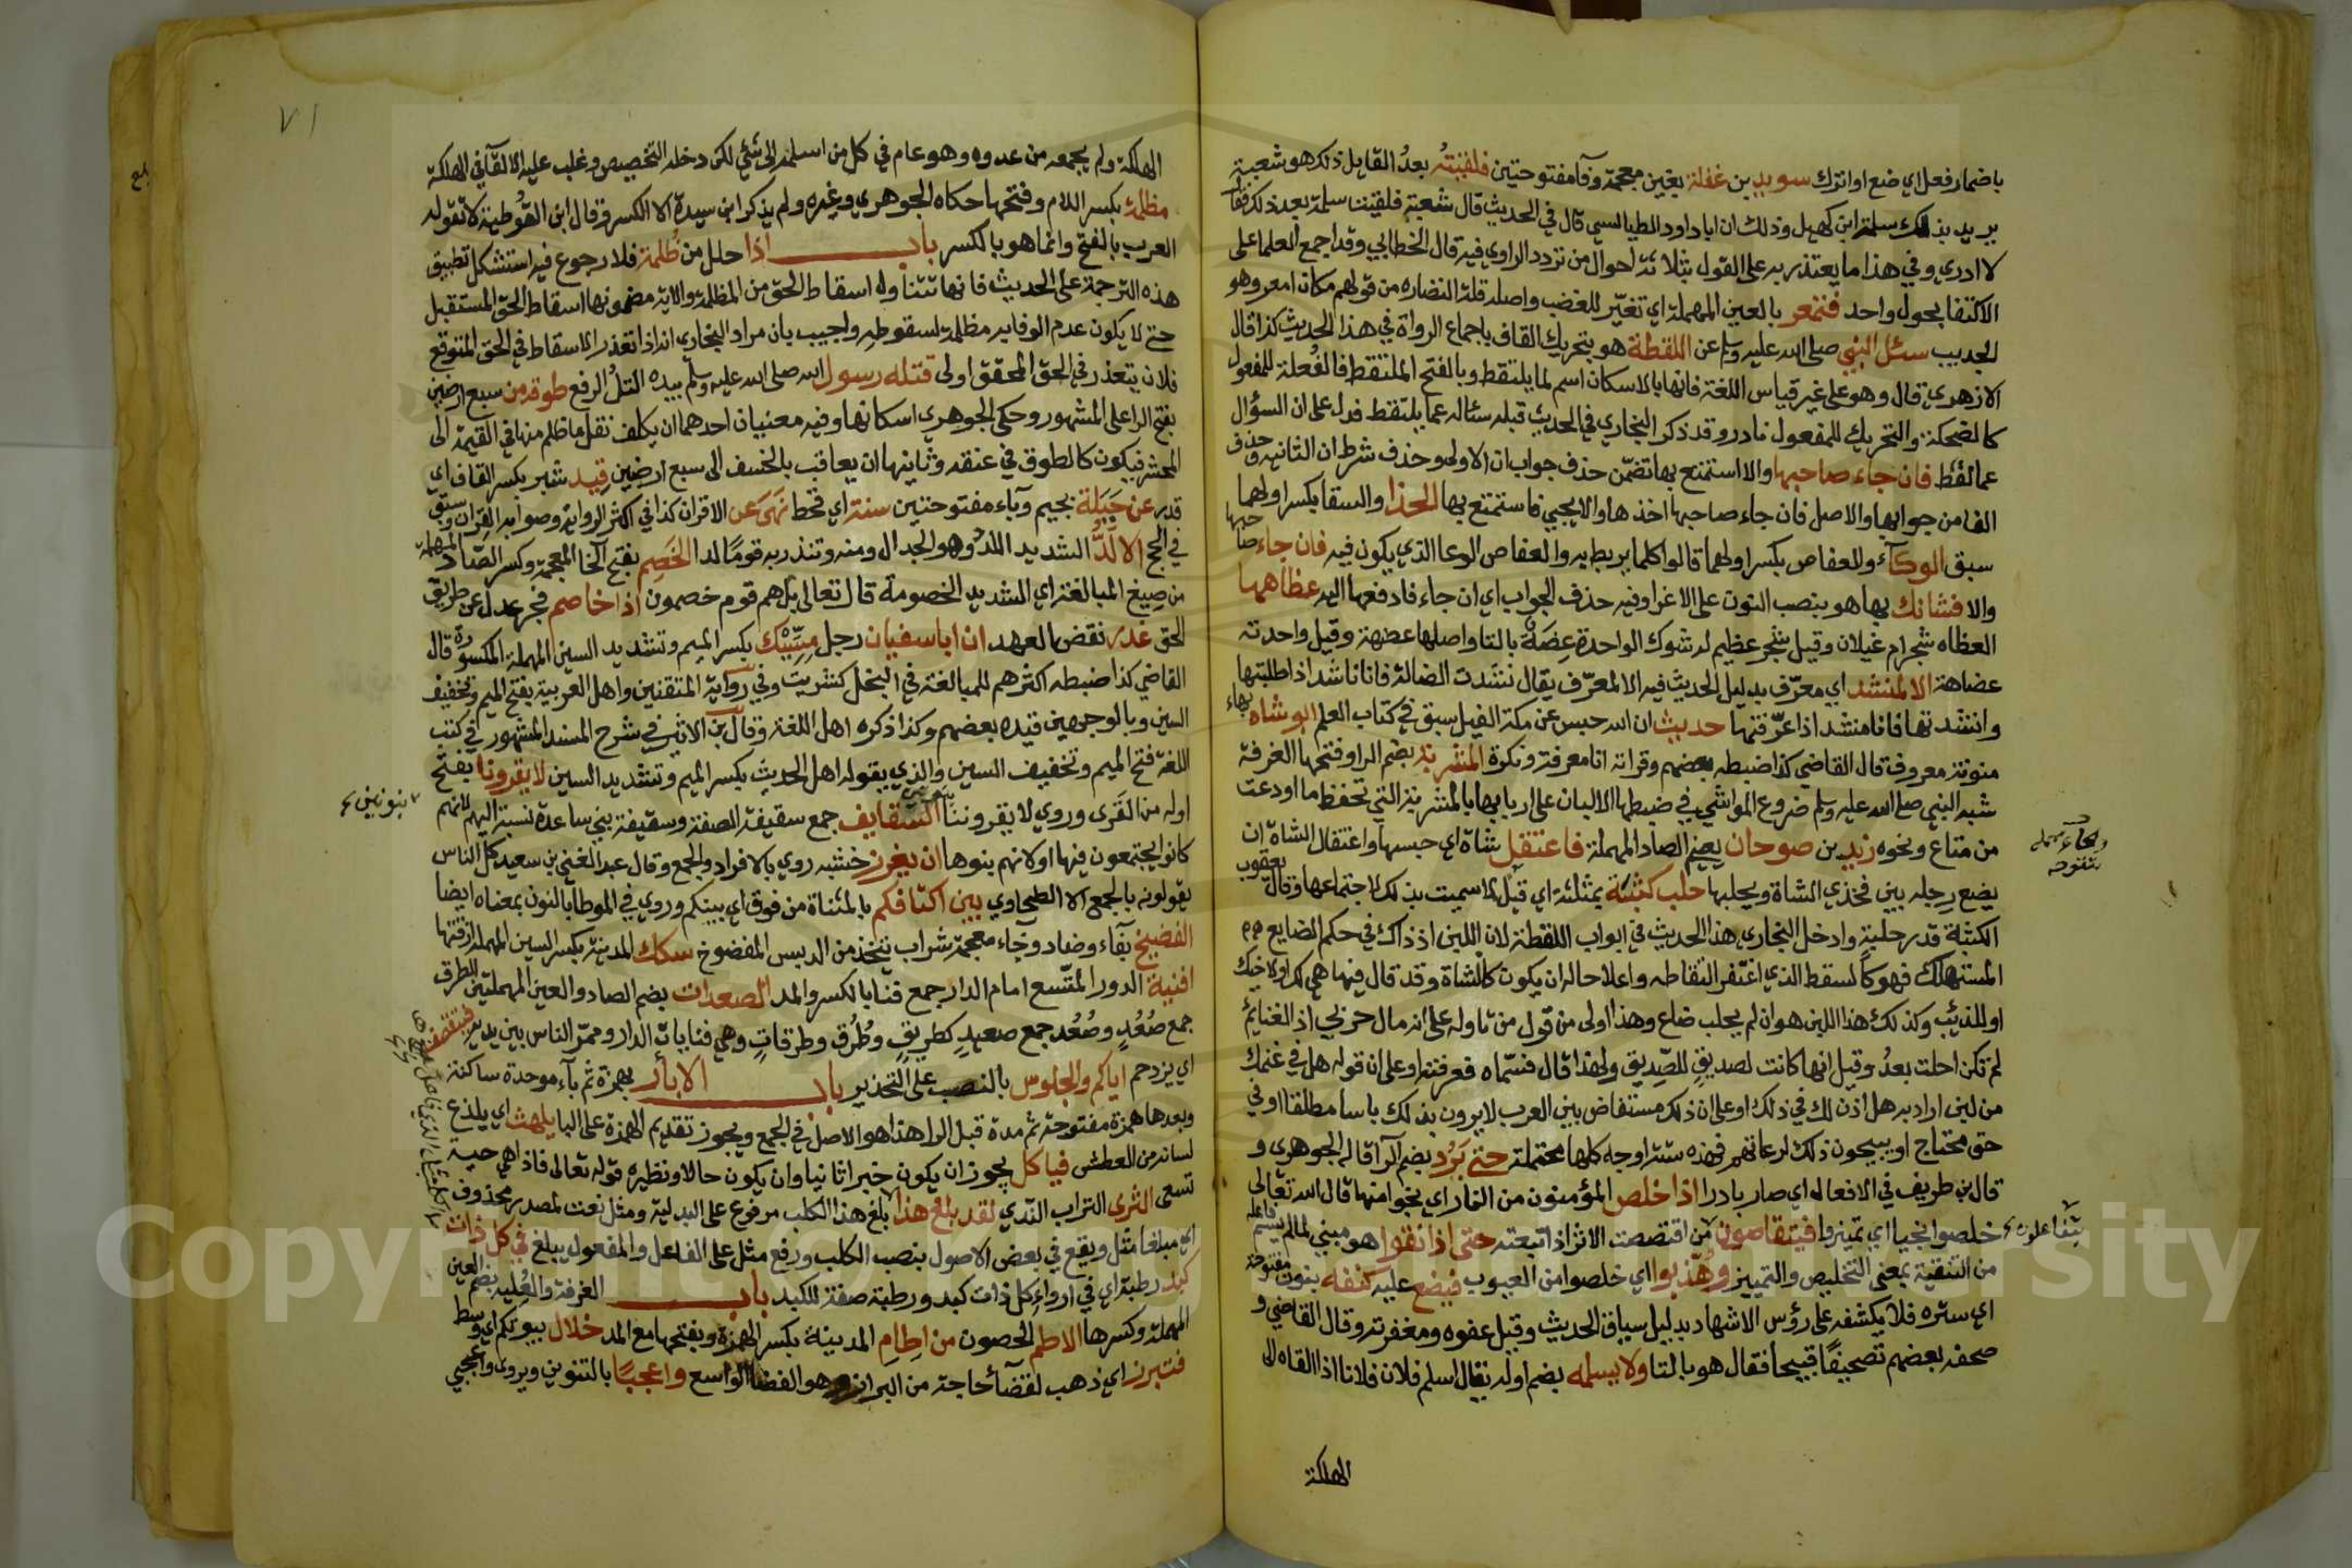 باضمار فعل اي ضع او اترك سويد بن غفلة بغين معجمة وفآ مفتوحتين فلقيتُه بعدُ القايل ذلك هو شعبة
يريد بذلك سلمة ابن كهيل وذلك ان ابا داود الطيالسي قال في الحديث قال شعبة فلقيت سلمة بعد ذلك فقال
لا ادري وفي هذا ما يعتذر به على القول بثلاثة احوال من تردد الراوي فيه قال الخطابي وقد اجمع العلما على
الاكتفا بحول واحد فتمعر بالعين المهملة اي تغيّر للغضب واصله قلة النضاره من قولهم مكان امعر وهو
الجديب سئل النبي صلى الله عليه وسلم عن اللقطة هو بتحريك القاف باجماع الرواة في هذا الحديث كذا قال
الازهري قال وهو على غير قياس اللغة فانها بالاسكان اسم لما يلتقط وبالفتح الملتقط فالفُعلة للمفعول
كالضحكة والتحريك للمفعول نادر وقد ذكر البخاري في الحديث قبله سئاله عما يلتقط فدل على ان السؤال
عما لقط فان جاء صاحبها والا استمتع بها تضمّن حذف جواب ان الاولى وحذف شرط ان الثانيه وحذف
الفا من جوابها والاصل فان جاء صاحبها اخذها والا يجي فاستمتع بها الحذا والسقا بكسر اولهما
سبق الوكآء وللعفاص بكسر اولهما قالوا كلما يربط به والعفاص الوعا الذي يكون فيه فان جاء صاحبها
والا فشانك بها هو بنصب النون على الاغرا وفيه حذف الجواب اي ان جاء فادفعها اليه عظاهها
العظاه شجر ام غيلان وقيل شجر عظيم له شوك الواحدة عِضَة بالتا واصلها عضهة وقيل واحدته
عضاهة الا لمنشد اي معرّف بدليل الحديث فيه الا لمعرّف يقال نشدت الضالة فانا ناشد اذا طلبتها
وانشدتها فانا منشد اذا عرّفتها حديث ان الله حبس عن مكة الفيل سبق في كتاب العلم ابو شاه بهاء
منونة معروف قال القاضي كذا ضبطه بعضهم وقراته انا معرفة ونكرة المشربة بضم الرا وفتحها الغرفة
شبه النبي صلى الله عليه وسلم ضروع المواشي في ضبطها الالبان على اربابها بالمشربة التي تحفظ ما اودعت
من متاع ونحوه زيد بن صوحان بضم الصاد المهملة فاعتقل شاة اي حبسها واعتقال الشاة ان
يضع رجله بين فخذي الشاة ويحلبها حلب كثبة بمثلثة اي قيل لما سميت بذلك لاجتماعها وقال يعقوب
الكثبة قدر حلبة وادخل البخاري هذا الحديث في ابواب اللقطة لان اللبن اذ ذاك في حكم الضايع
المستهلك فهو كالسقط الذي اغتفر التقاطه واعلا حاله ان يكون كالشاة وقد قال فيها هي لك او لاخيك
او للذئب وكذلك هذا اللبن هو ان لم يحلب ضاع وهذا اولى من قول من تاوله على انه مال حربي اذ الغنايم
لم تكن احلت بعدُ وقيل انها كانت لصديقٍ للصِّديق ولهذا قال فسّماه فعرفته او على ان قوله هل في غنمك
من لبن اراد به هل اذن لك في ذلك او على ان ذلك مستفاض بين العرب لا يرون بذلك باسا مطلقا او في
حق محتاج او يبيحون ذلك لرعاتهم فهذه ستة اوجه كلها محتملة حتى بَرُد بضم الرآ قاله الجوهري و
قال بن طريف في الافعال اي صار باردا اذا خلص المؤمنون من النار اي نجوا منها قال الله تعالى
خلصوا نجيا اي تميزوا فيتقاصون من اقتصصت الاثر اذا تبعته حتى اذا نقوا هو مبني لما لم يسم فاعله
من التنقية بمعنى التخليص والتمييز وهُذّبوا اي خلصوا من العيوب فيضع عليه كنفه بنون مفتوحة
اي ستره فلا يكشفه على رؤس الاشهاد بدليل سياق الحديث وقيل عفوه ومغفرته وقال القاضي و
صحفه بعضهم تصحيفًا قبيحا فقال هو بالتا ولا يسلمه بضم اوله يقال اسلم فلان فلانا اذا القاه الى
الهلكة
يتفاعلون
٧١
الهلكة ولم يحمه من عدوه وهو عام في كل من اسلمه الى شئي لكن دخله التخصيص وغلب عليه الالقآ في الهلكة
مظلمة بكسر اللام وفتحها حكاه الجوهري وغيره ولم يذكر ابن سيدة الا الكسر وقال ابن القُوطية لا تقوله
العرب بالفتح وانما هو بالكسر باب اذا حلل من ظُلمة فلا رجوع فيه استشكل تطبيق
هذه الترجمة على الحديث فانها تتناول اسقاط الحق من المظلمة والاية مضمونها اسقاط الحق المستقبل
حتى لا يكون عدم الوفا به مظلمة لسقوطه واجيب بان مراد البخاري انه اذا تعذر الاسقاط في الحق المتوقع
فلان يتعذر في الحق المحقق اولى فتله رسول الله صلى الله عليه وسلم بيده التلُ الرفع طوقه من سبع ارضين
بفتح الرا على المشهور وحكى الجوهري اسكانها وفيه معنيان احدهما ان يكلف نقل ما ظلم منها في القيمة الى
المحشر فيكون كالطوق في عنقه وثانيها ان يعاقب بالخسف الى سبع ارضين قِيد شبر بكسر القاف اي
قدر عن جَبَلة بجيم وبآء مفتوحتين سنة اي قحط نهى عن الاقران كذا في اكثر الرواية وصوابه القِران وسبق
في الحج الالَدُّ الشديد اللدّ وهو الجدال ومنه وتنذر به قومًا لدا الخَصِم بفتح الخآ المعجمة وكسر الصّاد المهملة
من صِيغ المبالغة اي الشديد الخصومة قال تعالى بل هم قوم خصمون اذا خاصم فجر عدل عن طريق
الحق غدر نقض العهد ان ابا سفيان رجل مِسِّيْك بكسر الميم وتشديد السين المهملة المكسورة قال
القاضي كذا ضبطه اكثرهم للمبالغة في البخل كشريب وفي رواية المتقنين واهل العربية بفتح الميم وتخفيف
السين وبالوجهين قيده بعضهم وكذا ذكره اهل اللغة وقال بن الاثير في شرح المسند المشهور في كتب
اللغة فتح الميم وتخفيف السين والذي يقوله اهل الحديث بكسر الميم وتشديد السين لا يقرونا بفتح
اوله من القَرَى وروي لا يقروننا بنونين السقايف جمع سقيفة الصفة وسقيفة بني ساعدة نسبة اليهم لانهم
كانوا يجتمعون فيها او لانهم بنوها ان يغرز خشبه روي بالافراد والجمع وقال عبد الغني بن سعيد كل الناس
يقولونه بالجمع الا الطحاوي بين اكتافكم بالمثناة من فوق اي بينكم وروي في الموطا بالنون بمعناه ايضا
الفضيخ بفآء وضاد وخاء معجمة شراب يتخذ من البسر المفضوخ سكك المدينة بكسر السين المهملة ازقتها
افنية الدور المتسع امام الدار جمع فنا بالكسر والمد الصعدات بضم الصاد والعين المهملتين الطرق
جمع صُعُدٍ وصُعُد جمع صعيدٍ كطريقٍ وطُرُق وطرقاتٍ وهي فنا باب الدار وممرّ الناس بين يديه فيتقصف
اي يزدحم اياكم والجلوس بالنصب على التحذير باب الابأر بهمزة ثم بآء موحدة ساكنة
وبعدها همزة مفتوحة ثم مدة قبل الرا هذا هو الاصل في الجمع ويجوز تقديم الهمزة على البا يلهث اي يلذع
لسانه من العطش فياكل يجوز ان يكون خبرا ثانيا وان يكون حالا ونظيره قوله تعالى فاذا هي حية
تسعى الثرى التراب النّدي لقد بلغ هذا بلغ هذا الكلب مرفوع على البدلية ومثل نعت لمصدر محذوف
اي مبلغا مثل ويقع في بعض الاصول بنصب الكلب ورفع مثل على الفاعل والمفعول يبلغ في كل ذات
كبد رطبة اي في ارواء كل ذات كبد ورطبة صفة للكبد باب الغرفة والعُلية بضم العين
المهملة وكسرها الاطم الحصون من اطام المدينة بكسر الهمزة وبفتحها مع المد خلال بيوتكم اي وسط
فتبرز اي ذهب لقضآء حاجته من البراز وهو الفضا الواسع واعجبًا بالتنوين ويروى واعجبي
بنونين